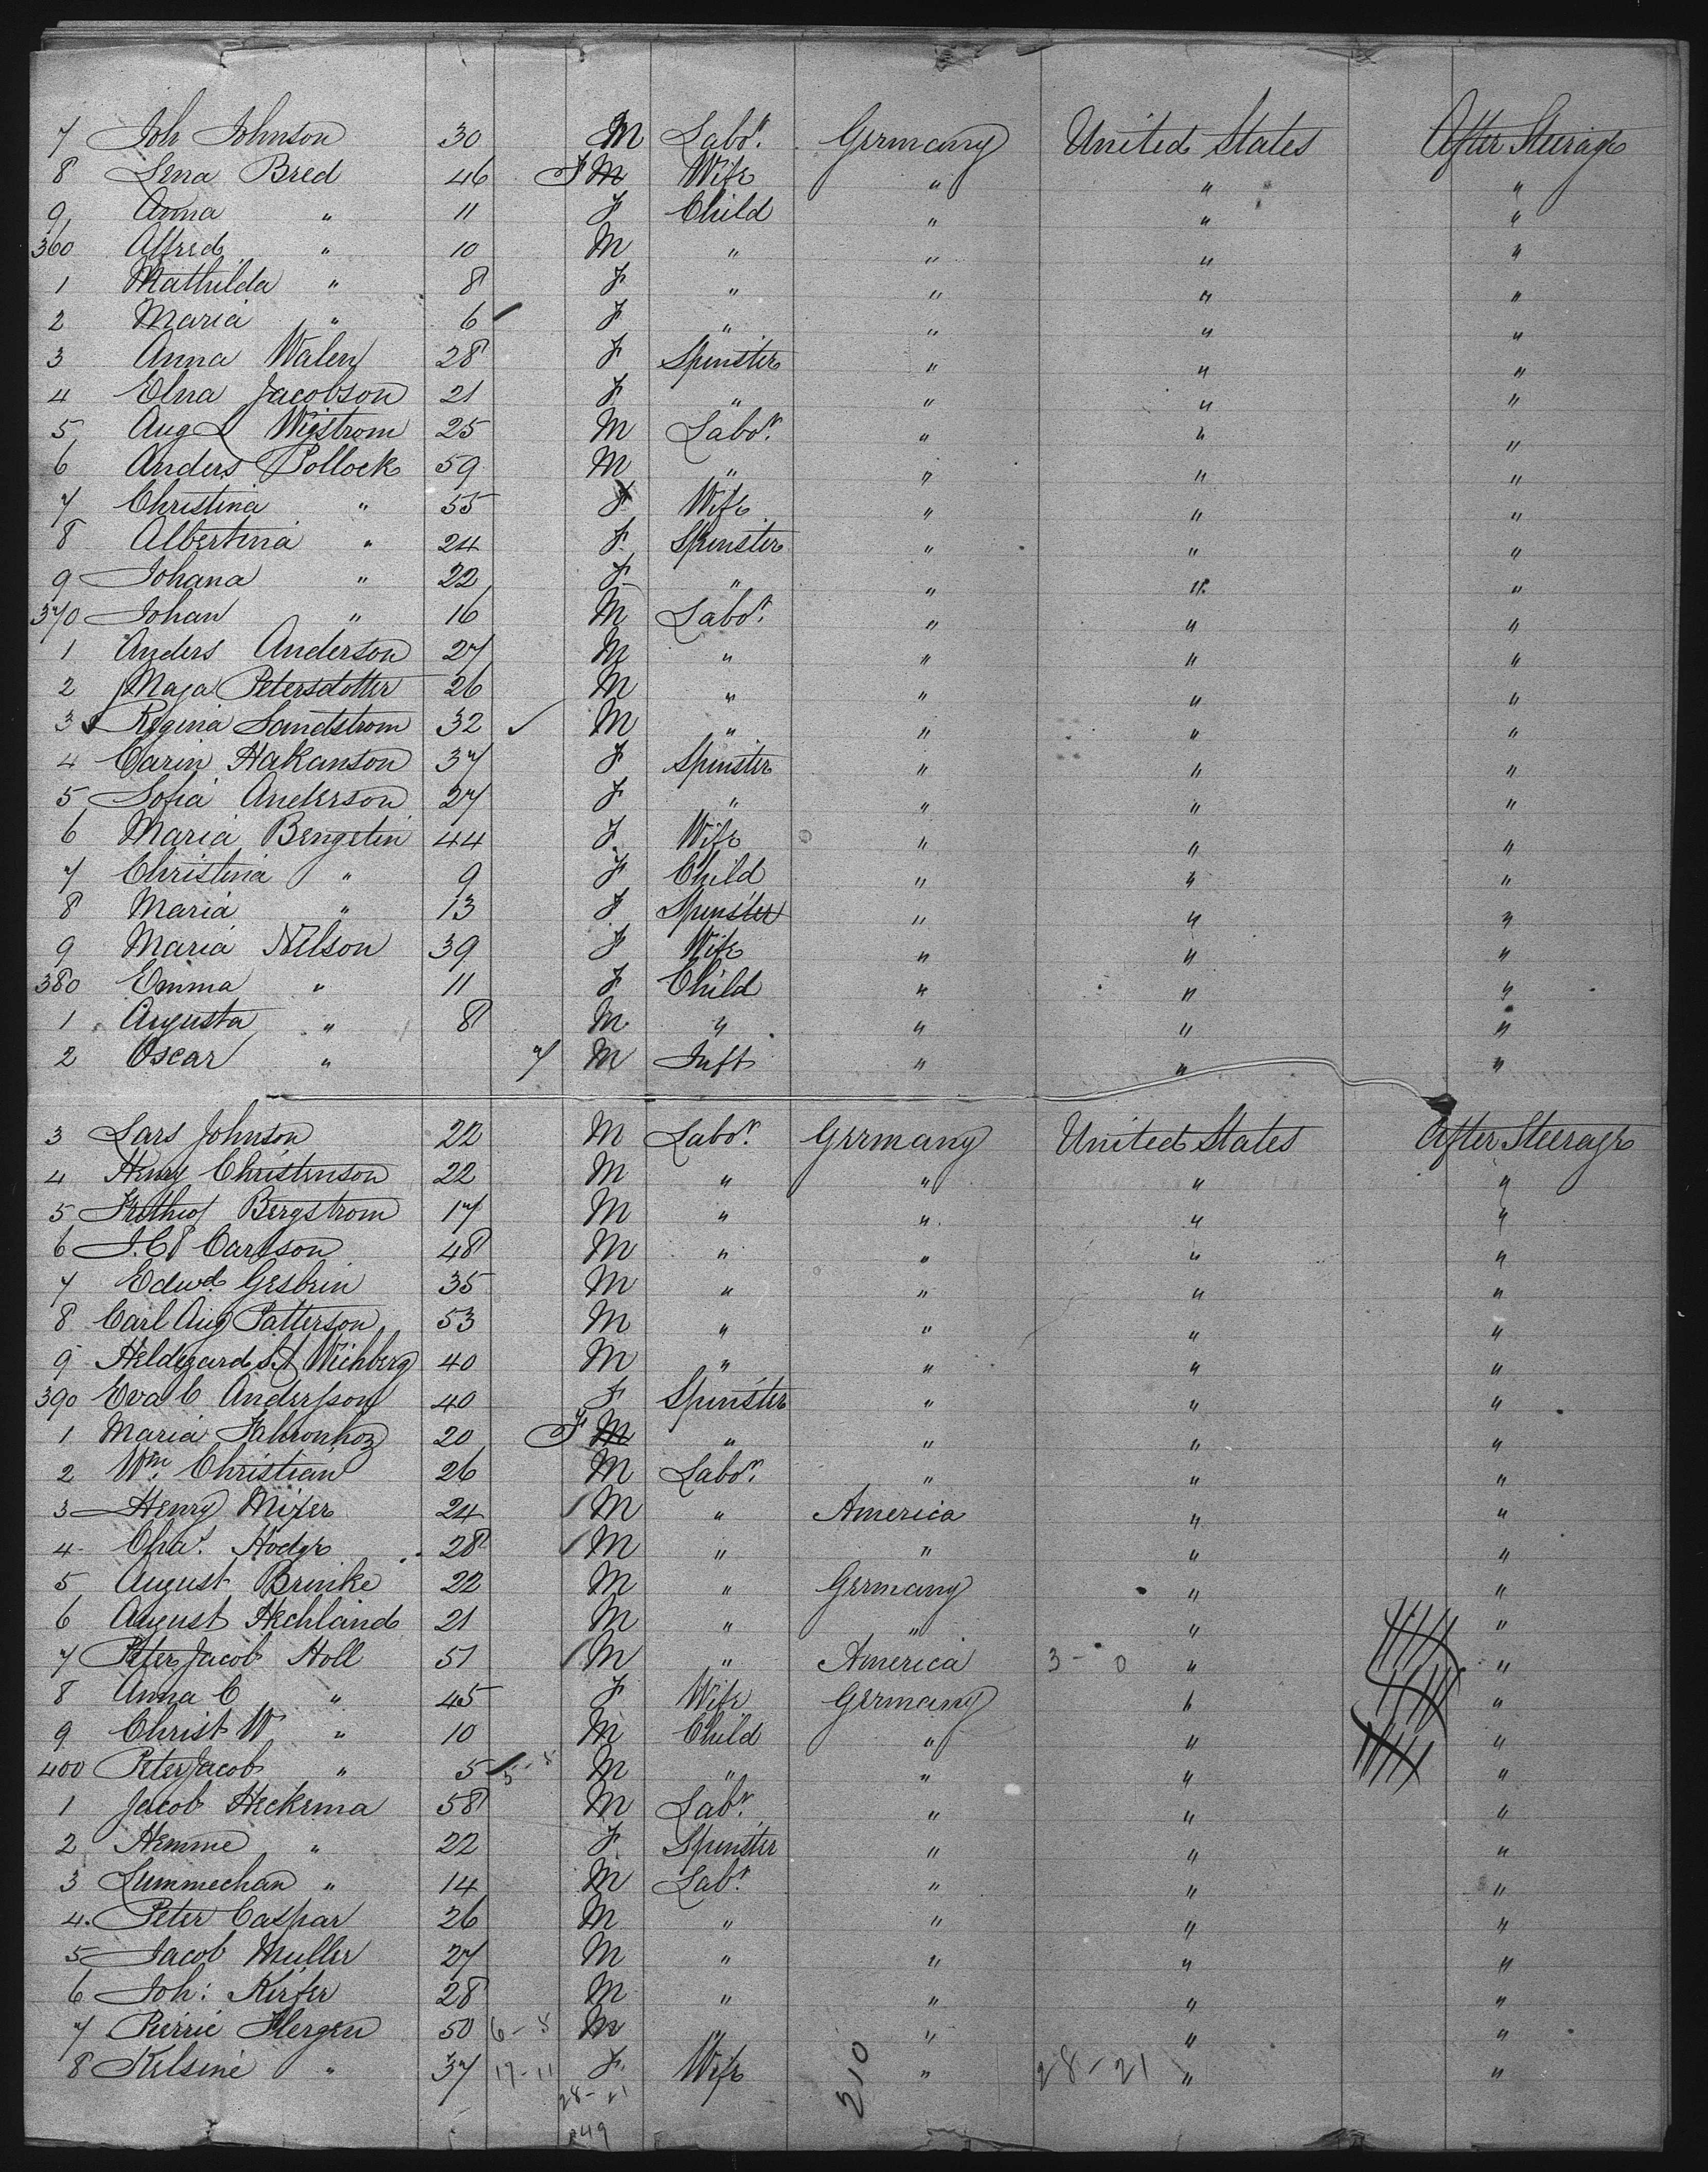 7 Joh Johnson 30 M Labor. Germany United States After Steerage
8 Lena Bred 46 F M Wife " " "
9 Anna " 11 F Child " " "
360 Alfred " 10 M " " " "
1 Mathilda " 8 F " " " "
2 Maria " 6 F " " " "
3 Anna Walen 28 F Spinster " " "
4 Elna Jacobson 21 F " " " "
5 Aug L Wigstrom 25 M Labor. " " "
6 Anders Pollock 59 M " " " "
7 Christina " 55 F Wife " " "
8 Albertina " 24 F Spinster " " "
9 Johana " 22 F " " " "
370 Johan " 16 M Labor. " " "
1 Anders Anderson 27 M " " " "
2 Maja Petersdotter 26 M " " " "
3 Regina Sandstrom 32 ✓ M " " " "
4 Carin Hakanson 37 F Spinster " " "
5 Sofia Anderson 27 F " " " "
6 Maria Bengstin 44 F Wife " " "
7 Christina " 9 F Child " " "
8 Maria " 13 F Spinster " " "
9 Maria Nilson 39 F Wife " " "
380 Emma " 11 F Child " " "
1 Augusta " 8 M " " " "
2 Oscar " 7 M Inft " " "
3 Lars Johnson 22 M Labor. Germany United States After Steerage
4 Henry Christenson 22 M " " " "
5 Frithiof Bergstrom 17 M " " " "
6 J. C P Carlson 48 M " " " "
7 Edwd. Gesbrin 35 M " " " "
8 Carl Aug Patterson 53 M " " " "
9 Heldegard S A Wichberg 40 M " " " "
390 Eva C Andersson 40 F Spinster " " "
1 Maria 20 F M " " " "
2 Wm. Christian 26 M Labor. " " "
3 Henry Mixer 24 M " America " "
4 Chas. Hodge 28 M " " " "
5 August Brinke 22 M " Germany " "
6 August Hechland 21 M " " " "
7 Peter Jacob Holl 51 M " America 3 - 0 " "
8 Anna C " 45 F Wife Germany " "
9 Christ W " 10 M Child " " "
400 Peter Jacob " 5 5 - 8 M " " " "
1 Jacob Heckema 58 M Labr. " " "
2 Hemme " 22 F Spinster " " "
3 Lummechan " 14 M Labr. " " "
4. Peter Caspar 26 M " " " "
5 Jacob Muller 27 M " " " "
6 Joh: Kiefer 28 M " " " "
7 Pierrie Hergen 50 6 - 8 M " " " "
8 Kelsine " 37 17 - 11 F Wife " 28 - 21 " "
28 - 21
210
249